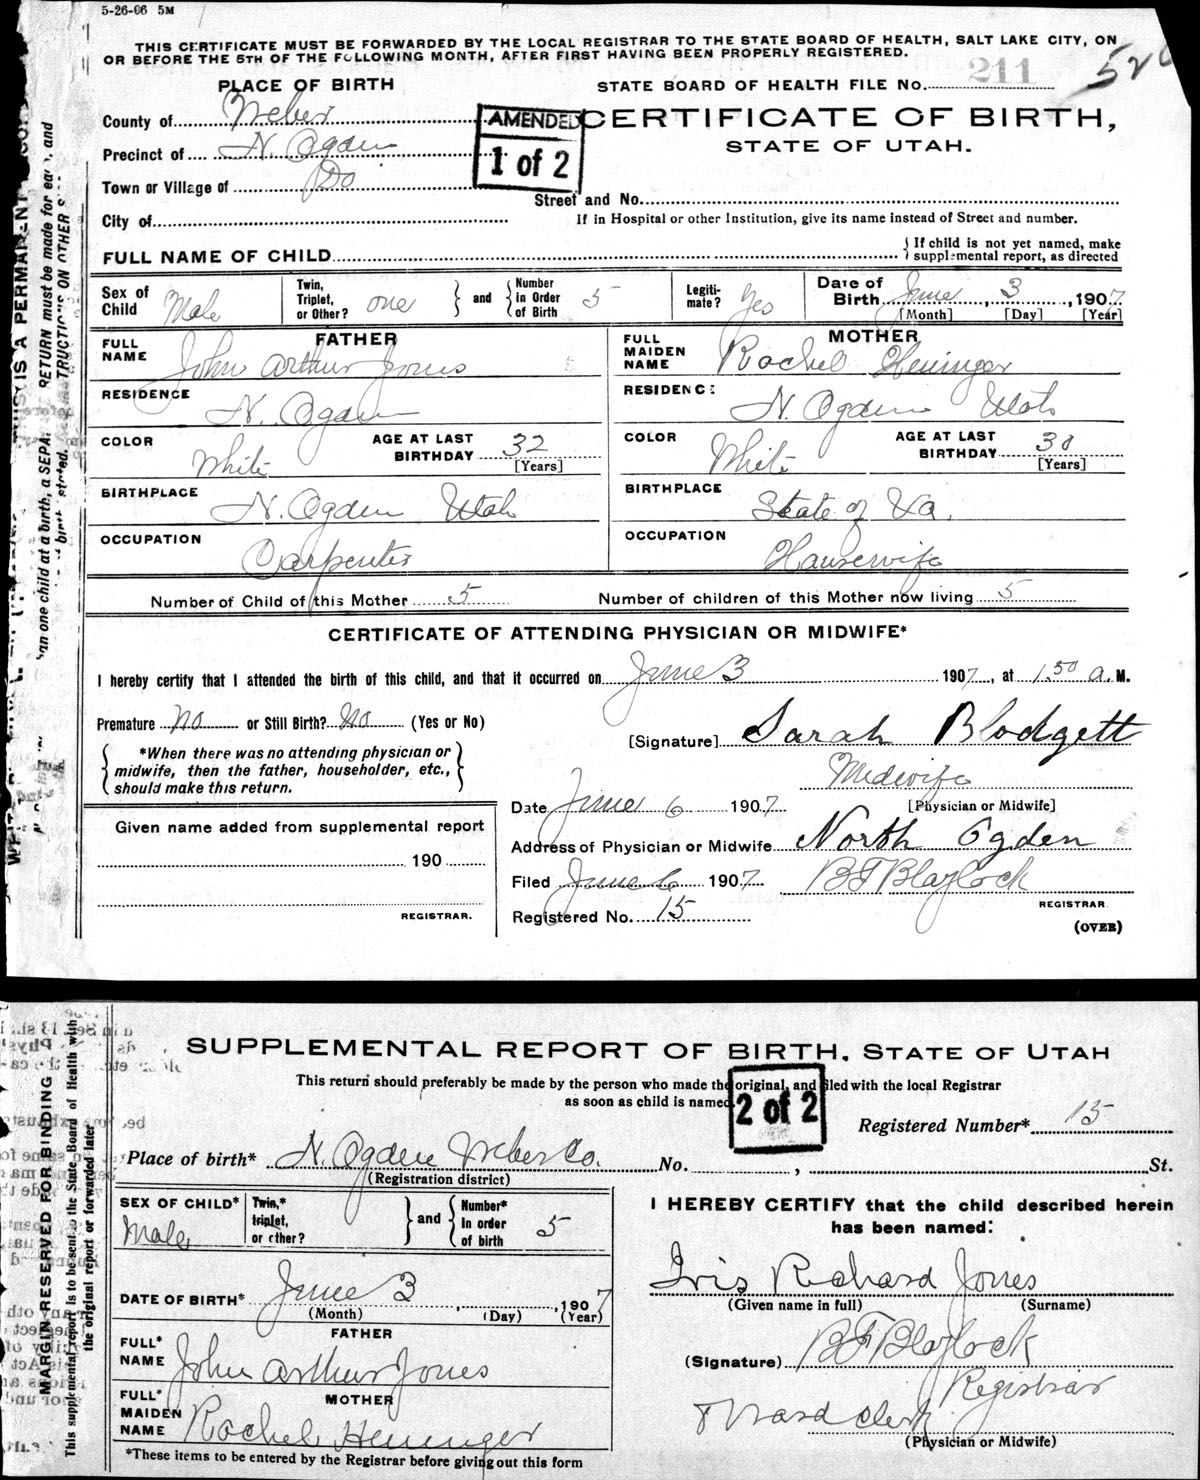 5-26-06 5M
THIS CERTIFICATE MUST BE FORWARDED BY THE LOCAL REGISTRAR TO THE STATE BOARD OF HEALTH, SALT LAKE CITY, ON
OR BEFORE THE 5TH OF THE FOLLOWING MONTH, AFTER FIRST HAVING BEEN PROPERLY REGISTERED.
PLACE OF BIRTH
STATE BOARD OF HEALTH FILE No. 211
County of Weber
AMENDED
1 of 2
CERTIFICATE OF BIRTH,
STATE OF UTAH.
Precinct of N. Ogden
Town or Village of Do
Street and No.
City of
If in Hospital or other Institution, give its name instead of Street and number.
FULL NAME OF CHILD
{ If child is not yet named, make
supplemental report, as directed
Sex of Child Male
Twin, Triplet, or Other? one } and { Number in Order of Birth 5
Legiti-mate? Yes
Date of Birth June 3, 1907
[Month] [Day] [Year]
FATHER
FULL NAME John Arthur Jones
RESIDENCE N. Ogden
COLOR White
AGE AT LAST BIRTHDAY 32
[Years]
BIRTHPLACE N. Ogden Utah
OCCUPATION Carpenter
MOTHER
FULL MAIDEN NAME Rachel Heninger
RESIDENCE N. Ogden Utah
COLOR White
AGE AT LAST BIRTHDAY 30
[Years]
BIRTHPLACE State of Va.
OCCUPATION Housewife
Number of Child of this Mother 5
Number of children of this Mother now living 5
CERTIFICATE OF ATTENDING PHYSICIAN OR MIDWIFE*
I hereby certify that I attended the birth of this child, and that it occurred on June 3 1907, at 1.50 a. M.
Premature No or Still Birth? No (Yes or No)
{ *When there was no attending physician or
midwife, then the father, householder, etc.,
should make this return. }
[Signature] Sarah Blodgett
Midwife
[Physician or Midwife]
Date June 6 1907
Given name added from supplemental report
190
REGISTRAR.
Address of Physician or Midwife North Ogden
Filed June 6 1907 BF Blaylock
REGISTRAR
Registered No. 15
(OVER)
SUPPLEMENTAL REPORT OF BIRTH, STATE OF UTAH
This return should preferably be made by the person who made the original, and filed with the local Registrar
as soon as child is named
2 of 2
Registered Number* 15
Place of birth* N. Ogden Weber Co. No. , St.
(Registration district)
SEX OF CHILD* Male
Twin,* triplet, or other? } and { Number* in order of birth 5
DATE OF BIRTH* June 3, 1907
(Month) (Day) (Year)
FATHER
FULL* NAME John Arthur Jones
MOTHER
FULL* MAIDEN NAME Rachel Heninger
*These items to be entered by the Registrar before giving out this form
I HEREBY CERTIFY that the child described herein
has been named:
Iris Richard Jones
(Given name in full) (Surname)
(Signature) BF Blaylock
Registrar
Ward clerk
(Physician or Midwife)
MARGIN RESERVED FOR BINDING
This supplemental report is to be sent to the State Board of Health with
the original report or forwarded later